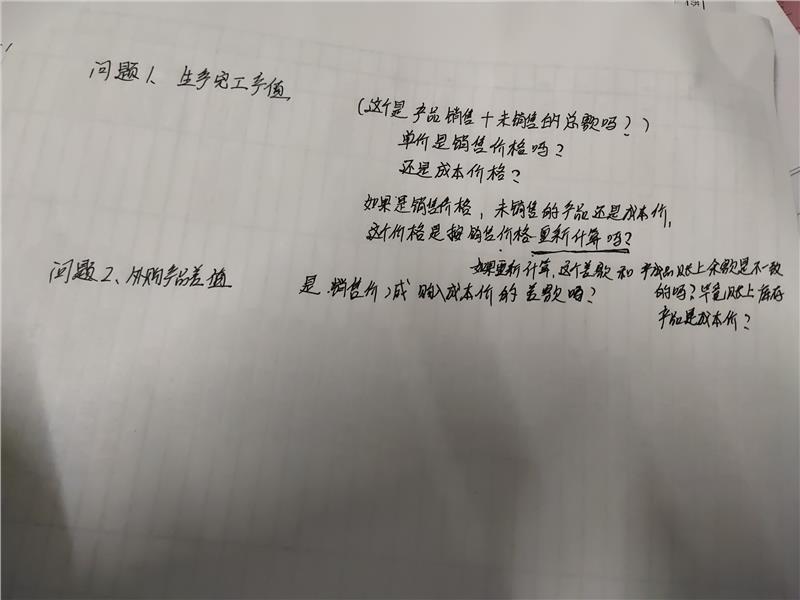 问题1、生产完工产值
(这个是产品销售+未销售的总数吗?)
单价是销售价格吗?
还是成本价格?
如果是销售价格,未销售的产品还是成本价,
这个价格是按销售价格重新计算吗?
如果重新计算,这个差款和产成品账上余款是不一致
的吗?毕竟账上库存
产品是成本价?
问题2、外购产品差值
是销售价减购入成本价的差款吗?